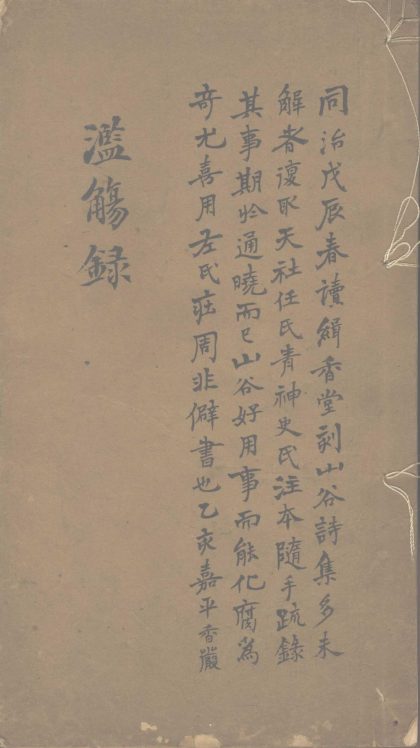 同治戊辰春讀緝香堂刻山谷詩集多未
解者復取天社任氏青神史氏注本隨手疏錄
其事期於通曉而已山谷好用事而能化腐為
奇尤喜用左氏莊周非僻書也乙亥嘉平香巖
濫觴録